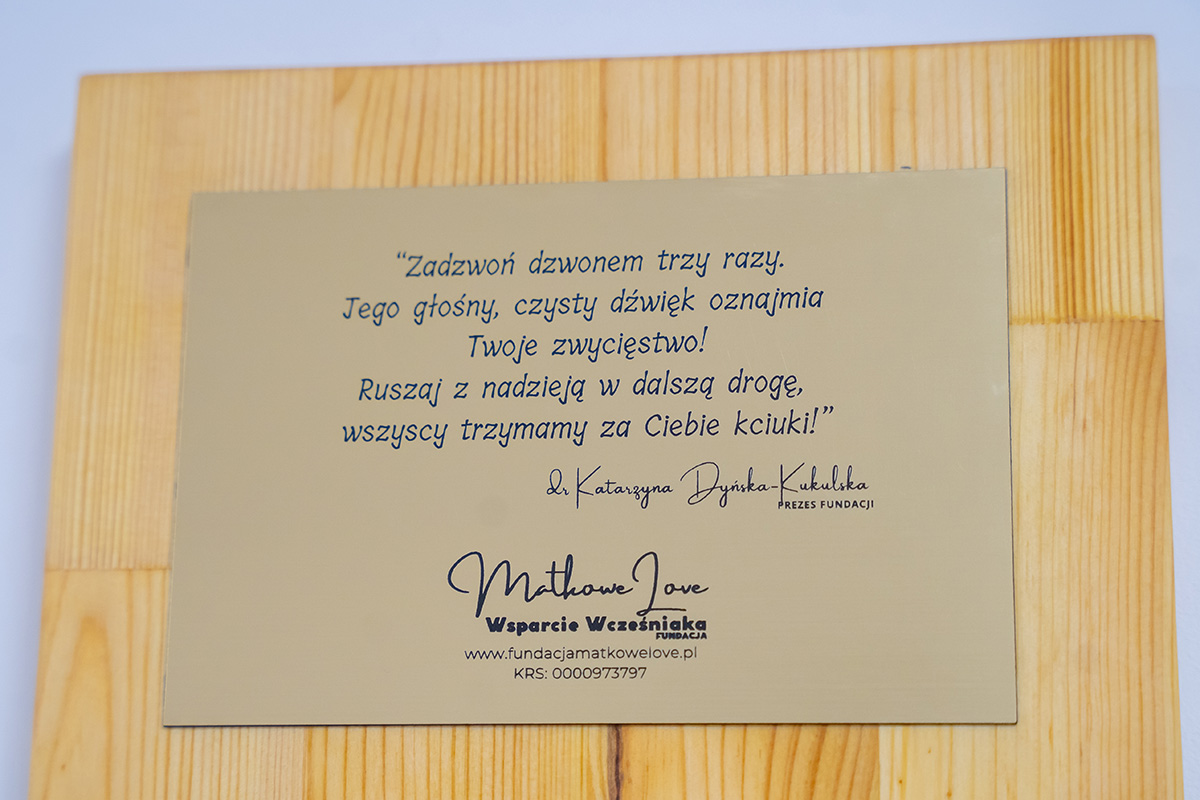 “Zadzwoń dzwonem trzy razy.
Jego głośny, czysty dźwięk oznajmia
Twoje zwycięstwo!
Ruszaj z nadzieją w dalszą drogę,
wszyscy trzymamy za Ciebie kciuki!”
dr Katarzyna Dyńska-Kukulska
PREZES FUNDACJI
Matkowe Love
Wsparcie Wcześniaka
FUNDACJA
www.fundacjamatkowelove.pl
KRS: 0000973797